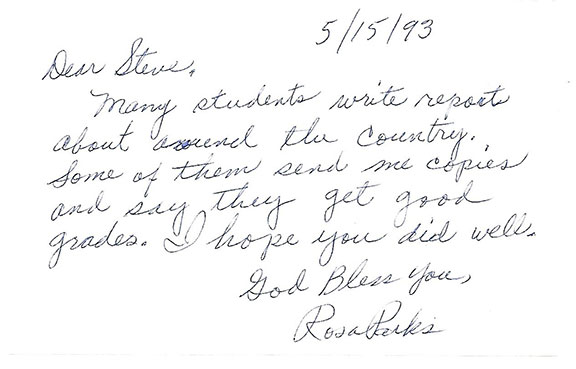 5/15/93
Dear Steve,
Many students write reports
about around the Country.
Some of them send me copies
and say they get good
grades. I hope you did well.
God Bless You,
Rosa Parks